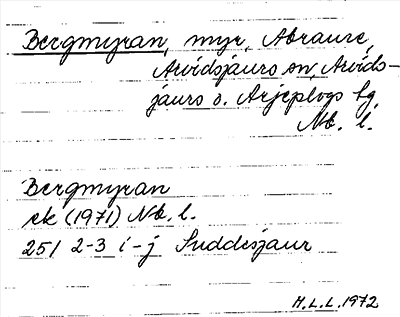 Bergmyran, myr, Abraure,
Arvidsjaurs sn, Arvids-
jaurs o. Arjeplogs tg
Nb. l.
Bergmyran
ek (1971) Nb. l.
25I 2-3 i-j Suddesjaur
H.L.L. 1972